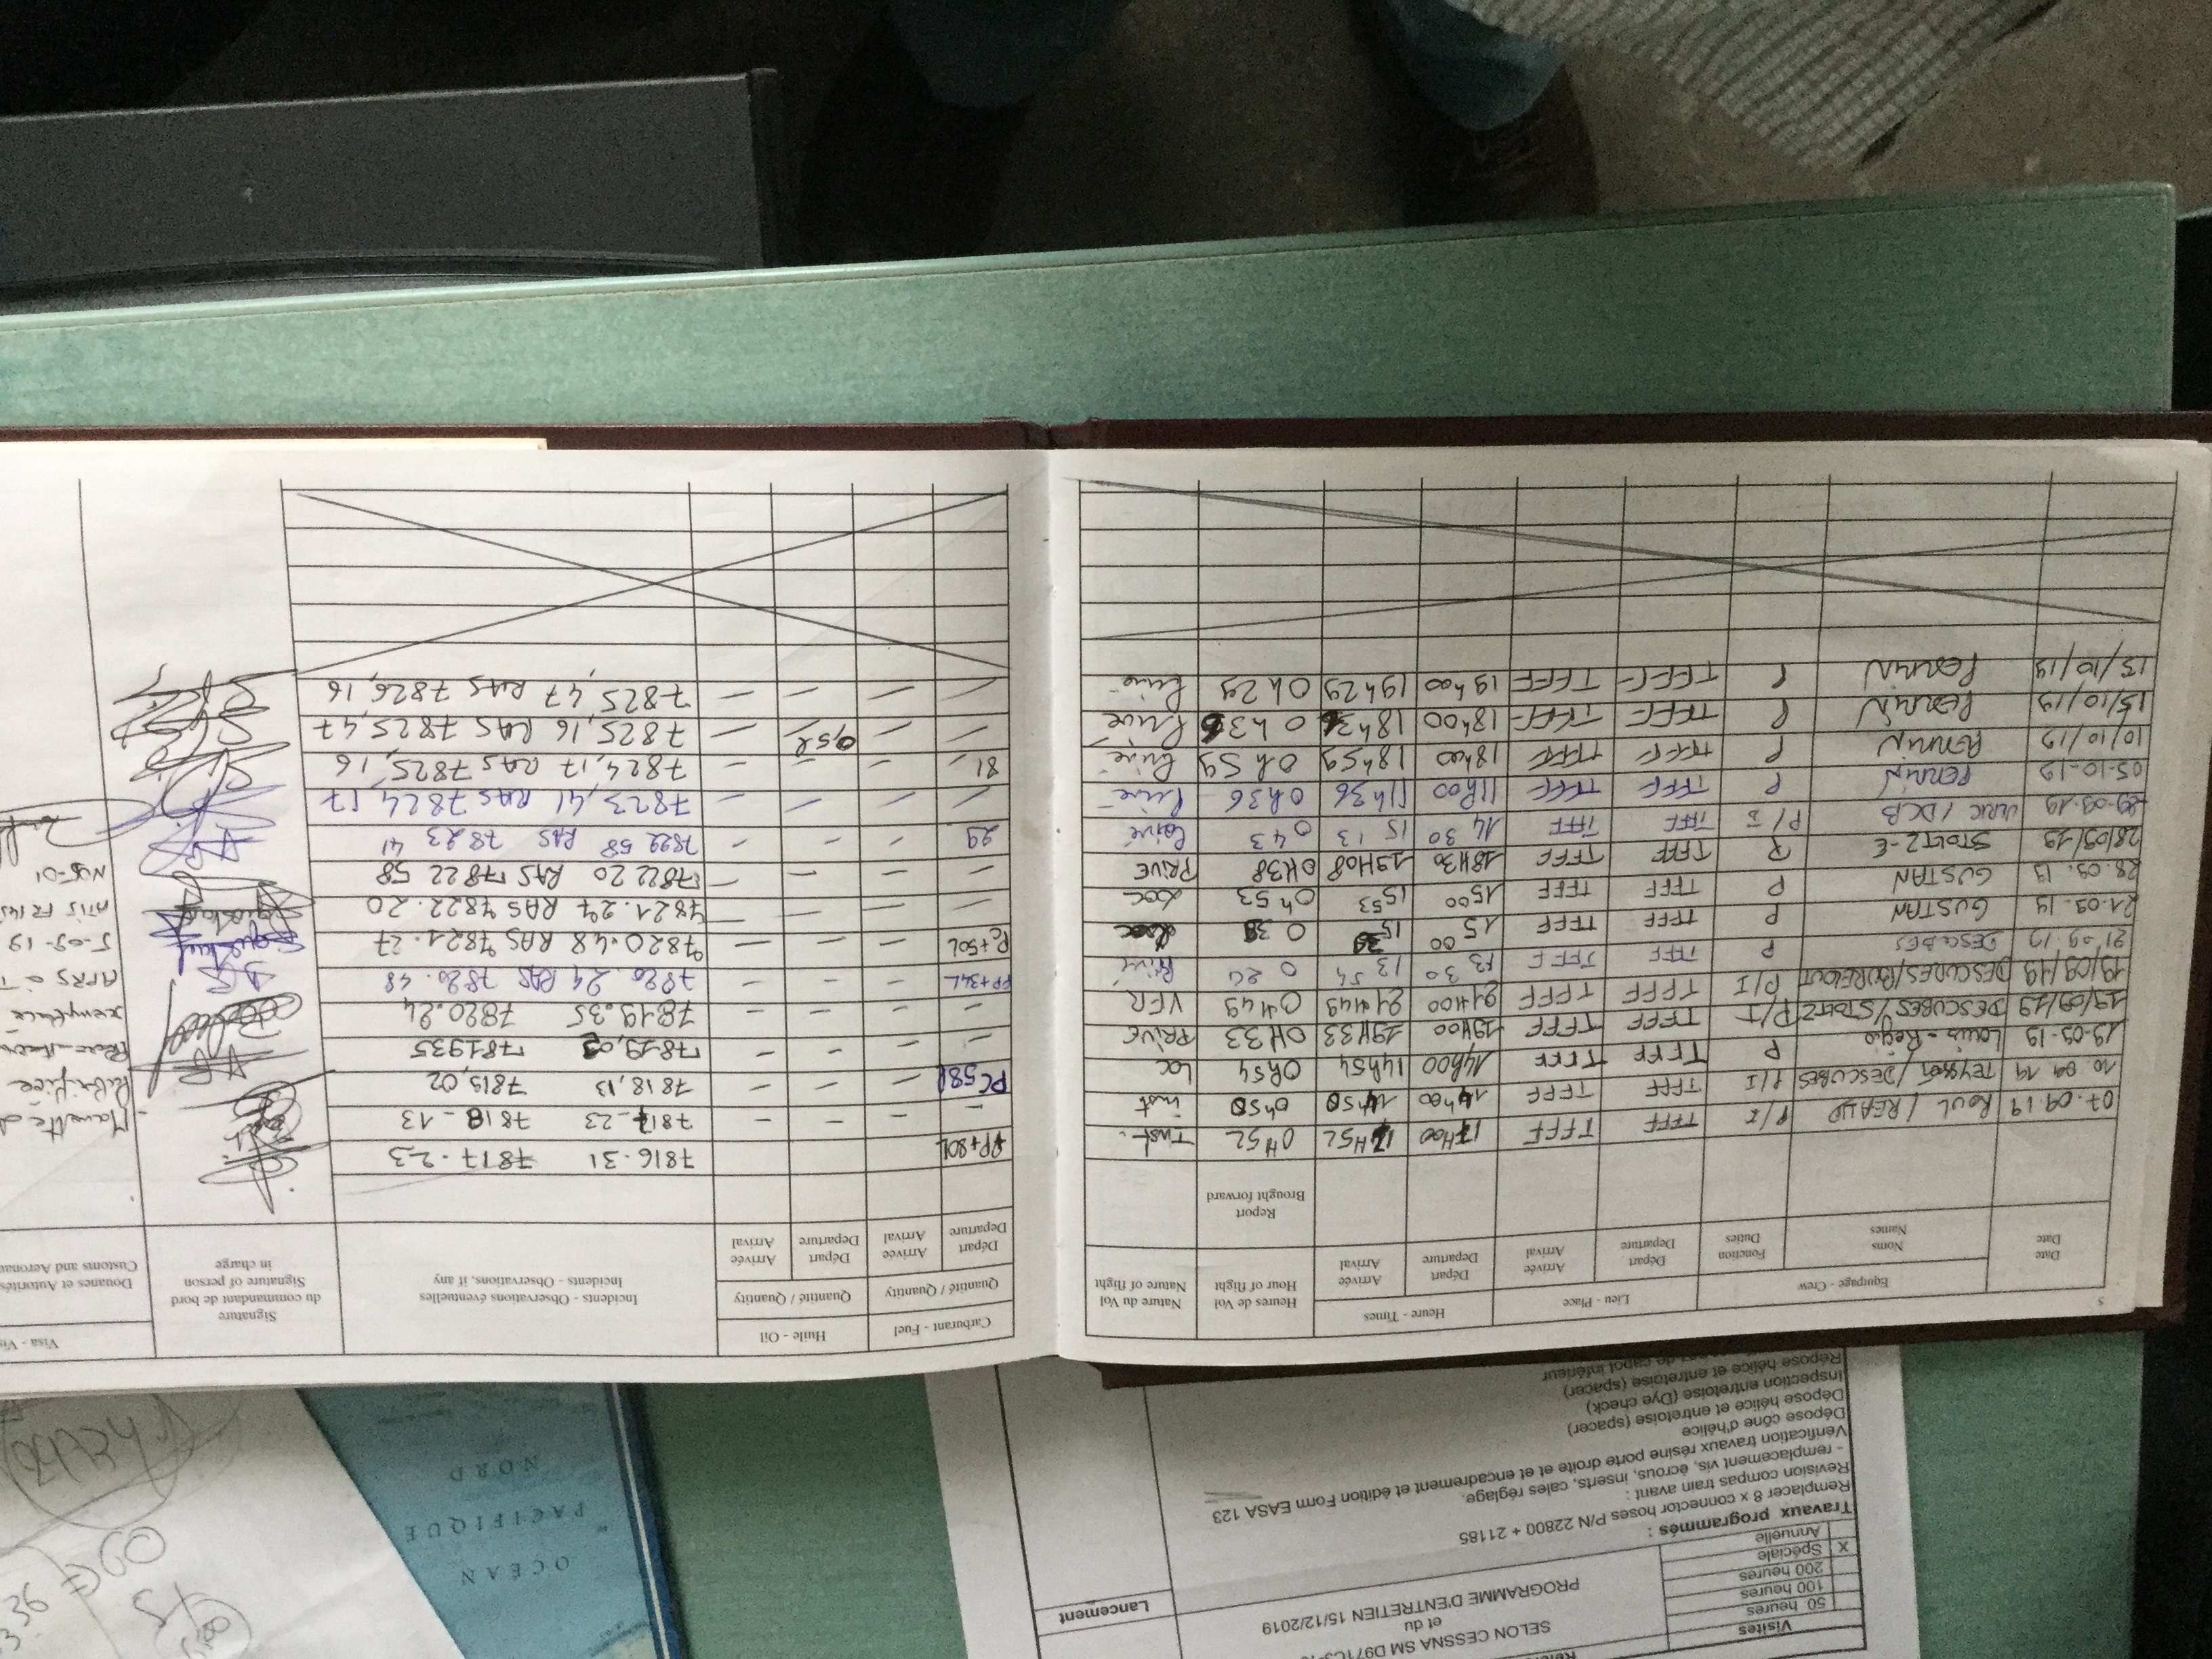 Visites
50 heures
100 heures
200 heures
X Spéciale
Annuelle
SELON CESSNA SM
et du
PROGRAMME D'ENTRETIEN 15/12/2019
Lancement
Travaux programmés :
Remplacer 8 x connector hoses P/N 22800 + 21185
Revision compas train avant :
- remplacement vis, écrous, inserts, cales réglage.
Vérification travaux résine porte droite et et encadrement et édition Form EASA 123
Dépose cône d'hélice
Dépose hélice et entretoise (spacer)
Inspection entretoise (Dye check)
Répose hélice et entretoise (spacer)
de capot inférieur
OCÉAN
PACIFIQUE
NORD
5
Date
Date
Equipage - Crew
Noms
Names
Fonction
Duties
Lieu - Place
Départ
Departure
Arrivée
Arrival
Heure - Times
Départ
Departure
Arrivée
Arrival
Heures de Vol
Hour of flight
Report
Brought forward
Nature du Vol
Nature of flight
07.09.19 ROUL / REAUD P/I TFFF TFFF 17H00 17H52 0H52 Inst.
10.09.19 /DESCUBES P/I TFFF TFFF 14h00 14h50 0h50 inst
19-09-19 Louis-Régis P TFFF TFFF 14h00 14h54 0h54 Loc
19/09/19 DESCUBES/STOLTZ P/I TFFF TFFF 19H00 19H33 0H33 PRIVE
19/09/19 P/I TFFF TFFF 21H00 21H49 0H49 VFR
21-09-19 DESCUBES P TFFF TFFF 13 30 13 54 0 24 Privé
21.09.19 GUSTAN P TFFF TFFF 15 00 15 39 0 39 Loc
28.09.19 GUSTAN P TFFF TFFF 15 00 15 53 0h 53 Loc
28/09/19 STOLTZ-E P TFFF TFFF 18H30 19H08 0H38 PRIVE
29-09-19 ULRIC / DCB P/I TFFF TFFF 14 30 15 13 0 43 Privé
05-10-19 PERRIN P TFFF TFFF 11h00 11h36 0h36 Privé
10/10/19 PERRIN P TFFF TFFF 18h00 18h59 0h 59 Privé
15/10/19 PERRIN P TFFF TFFF 18h00 18h3 0 h3 Privé
15/10/19 PERRIN P TFFF TFFF 19h00 19h29 0h29 Privé
Carburant - Fuel
Quantité / Quantity
Départ
Departure
Arrivée
Arrival
Huile - Oil
Quantité / Quantity
Départ
Departure
Arrivée
Arrival
Incidents - Observations éventuelles
Incidents - Observations, if any
Signature
du commandant de bord
Signature of person
in charge
Visa -
Douanes et Autorités
Customs and
PP+80L 7816.31 7817.23
- - - - 7817-23 7818-13
PC 58l - - - 7818,13 7819,02
- - - - 7819,02 781935
- - - - 7819.35 7820.24
PP+34L - - - 7820.24 RAS 7820.48
Pc+50L - - - 7820.48 RAS 7821.27
- - - - 7821.27 RAS 7822.20
- - - - 7822 20 RAS 7822 58
29 - - - 7822 58 RAS 7823 41
- - - - 7823,41 RAS 7824,17
81 - - - 7824,17 RAS 7825,16
- - 0,5l - 7825,16 RAS 7825,47
- - - - 7825,47 RAS 7826,16
- Manette
lubrifiée
remplacé
APRS
5-09-19
ATIS FR145